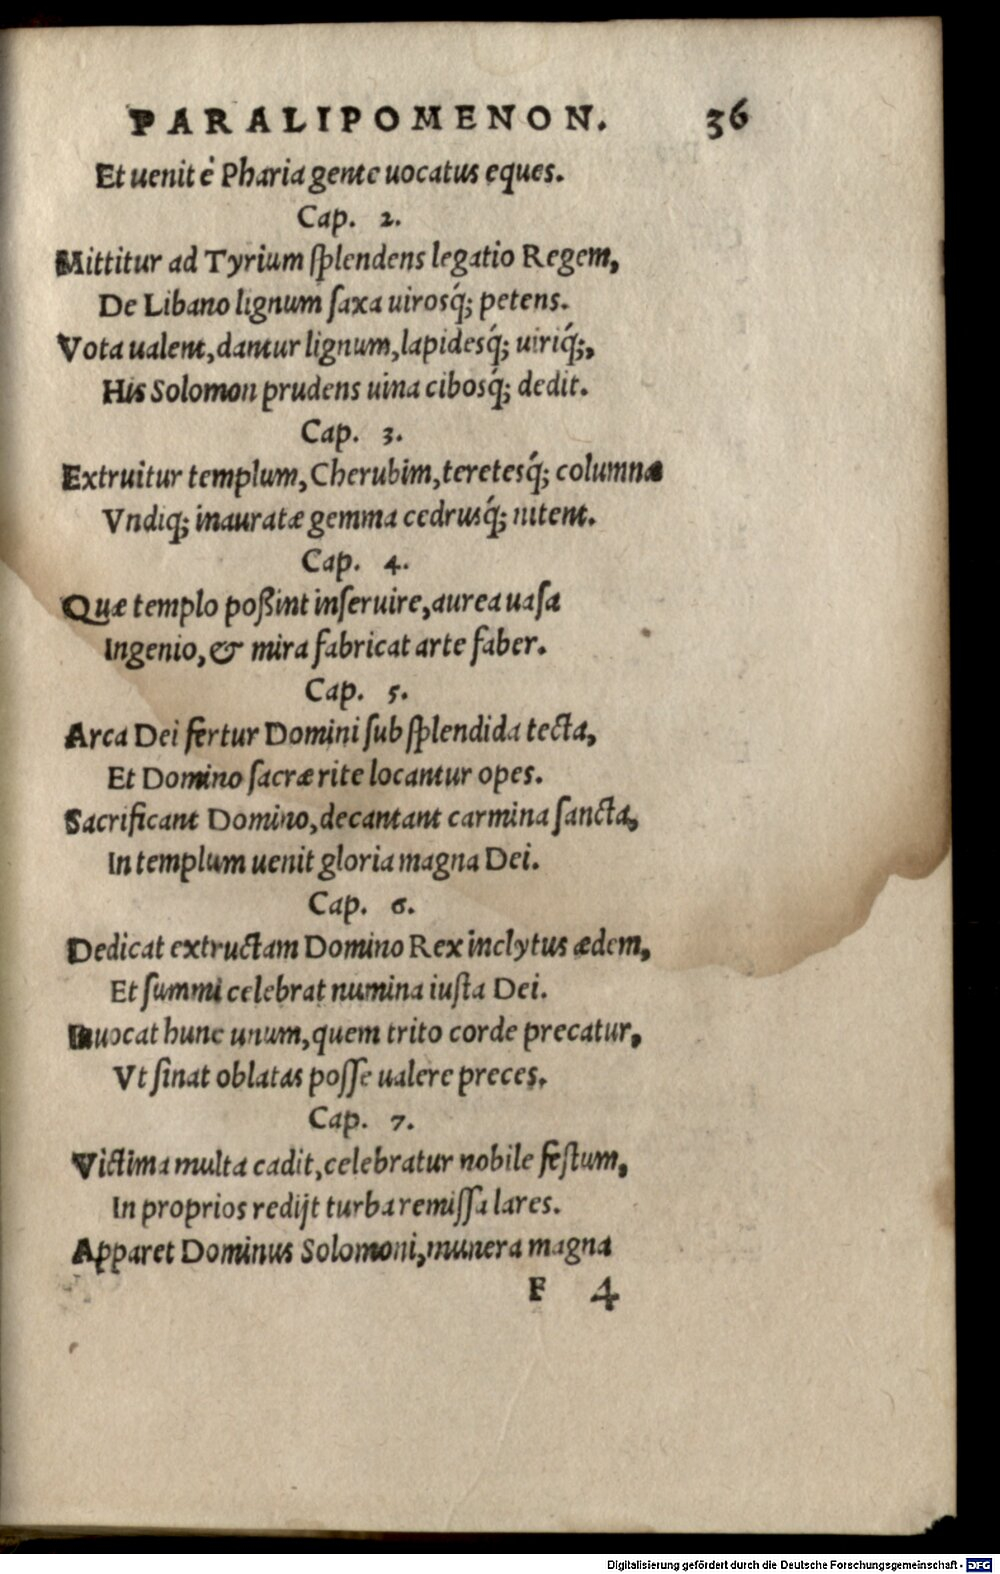 PARALIPOMENON. 36
Et uenit è Pharia gente uocatus eques.
Cap. 2.
Mittitur ad Tyrium ſplendens legatio Regem,
De Libano lignum ſaxa uirosq́; petens.
Vota ualent, dantur lignum, lapidesq́; uiriq́;,
His Solomon prudens uina cibosq́; dedit.
Cap. 3.
Extruitur templum, Cherubim, teretesq́; columnæ
Vndiq; inauratæ gemma cedrusq́; nitent.
Cap. 4.
Quæ templo poßint inſeruire, aurea uaſa
Ingenio, & mira fabricat arte faber.
Cap. 5.
Arca Dei fertur Domini ſub ſplendida tecta,
Et Domino ſacræ rite locantur opes.
Sacrificant Domino, decantant carmina ſancta,
In templum uenit gloria magna Dei.
Cap. 6.
Dedicat extructam Domino Rex inclytus ædem,
Et ſummi celebrat numina iuſta Dei.
Inuocat hunc unum, quem trito corde precatur,
Vt ſinat oblatas poſſe ualere preces.
Cap. 7.
Victima multa cadit, celebratur nobile feſtum,
In proprios redijt turba remiſſa lares.
Apparet Dominus Solomoni, munera magna
F 4
Digitalisierung gefördert durch die Deutsche Forschungsgemeinschaft - DFG